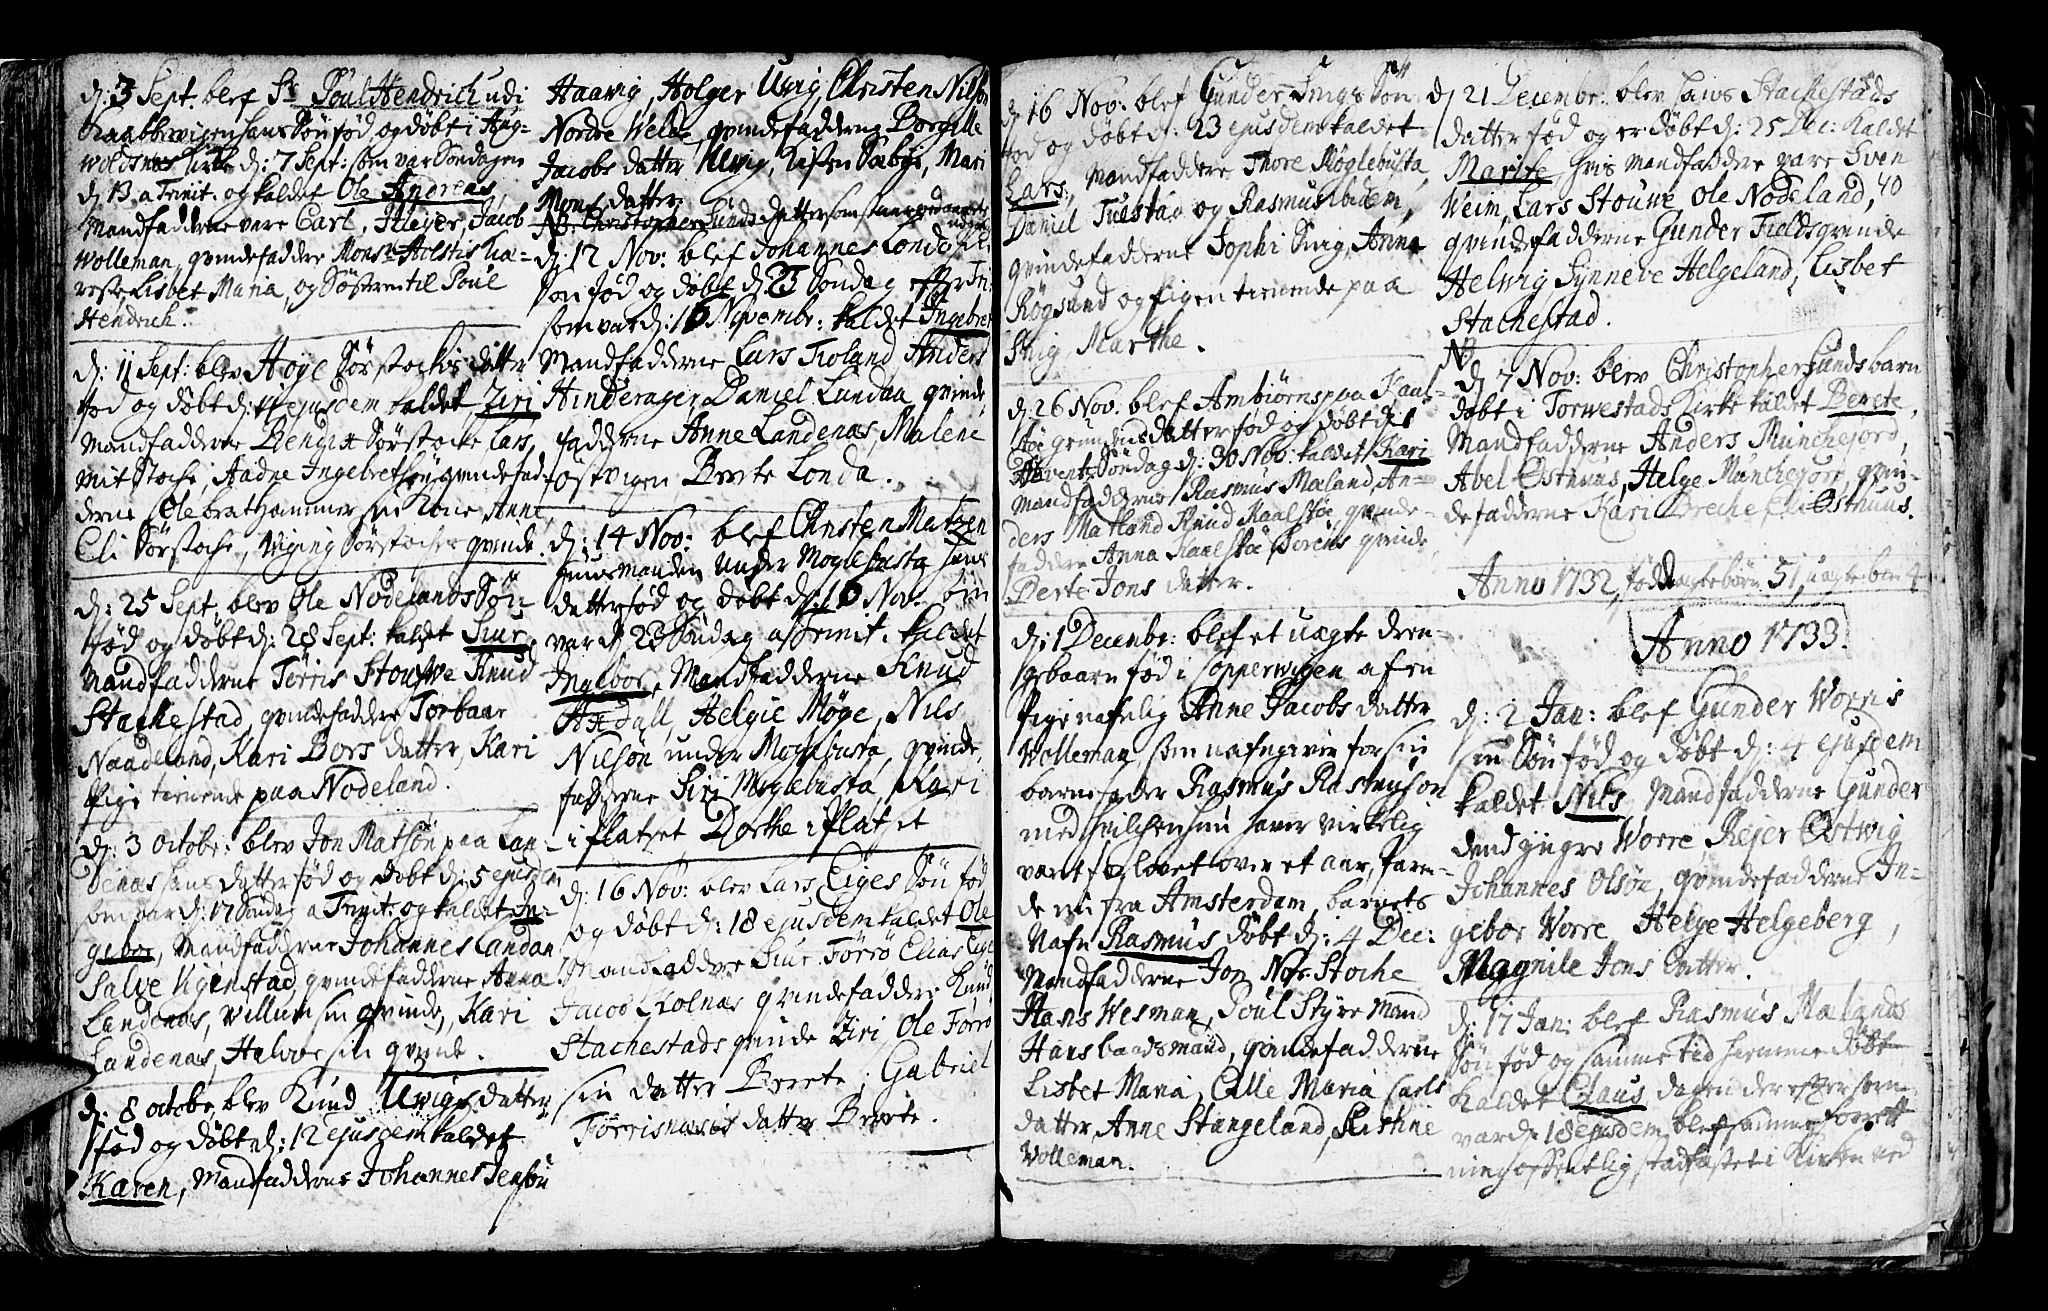 d: 3 Sept. blef Sr Poul Hendrich udi
hans Sön fød og døbt i Aug-
woldsnæs Kirke d: 7 Sept: som var Søndagen
d 13 a Trinit. og kaldet Ole Andreas,
Mandfadderne vare Carl, Meyer, Jacob
Wolleman, qvindefaddere Mons. Holstis Kiæ-
reste Lisbet Maria, og Søstren til Poul
Hendrich.
d: 11 Sept: blev Høye Sørstockes datter
fød og døbt d: ejusdem kaldet Ziri
Mandfadderne Bengt Sørstocke Lars,
Mitstocke, Aadne Ingebrethsøn qvindefad-
derne Ole brathammer sin Kone Anne
Eli Sørstocke, Sørstockes qvinde.
d: 25 Sept. blev Ole Nodelands Sön
fød og døbt d: 28 Sept: kaldet Siur
Mandfadderne Tørris Stouwe Knud
Stachestad, qvindefaddere Torbaar
Naadeland, Kari Bors datter, Kari
Pige tienende paa Nodeland.
d: 3 Octobr: blev Jon Matsön paa Lan-
denæs hans datter fød og døbt d: 5 ejusdem
som var d: 17 Søndag a Trinit: og kaldet In-
gebor, Mandfadderne Johannes Landaa
Salve Vigenstad, qvindefadderne Anna
Landenæs, Villum sin qvinde, Kari
Landenæs, Halvor sin qvinde.
d: 8 octobr, blev Knud Urvigs datter
fød og døbt d: 12 ejusdem kaldet
Karen, Mandfadderne Johannes Jensön
Haavig, Holger Urvig, Christen Nilsön
Nordre Welde, qvindefadderne Borgille
Jacobs datter Urvig, Kirsten Sæbye, Mari
Mons datter.
NB. Christopher Sunds datter som staar
d: 12 Nov: blef Johannes Londe
Son fød og døbt d: 23 Søndag efter Tri:
som var d: 16 Novembr: kaldet Ingebret
Mandfadderne Lars Troland Anders
Hinderager, Daniel Landaa, qvinde
fadderne Anne Landenæs, Malene
østvigen Berte Londa.
d: 14 Nov: blef Christen Matzen
huusmanden under Moglebusta hans
datter fød og døbt d: 16 Nov. som
var d 23 Søndag a Trinit. kaldet
Ingebor, Mandfadderne Knud
Aadall, Helgie Møge, Nils
Nilson under Moglebusta, qvinde,
fadderne Siri Moglebusta, Kari
i platset Dorthe i Platzet
d: 16 Nov: blev Lars Eiges Sön fød
og døbt d: 18 ejusdem kaldet Ole
Mandfaddere Siur Førrö Elias Eige
Jacob Kolnæs qvindefaddere Knud
Stachestads qvinde Ziri, Ole Førrö
sin datter Berte, Gabriel
Førrisnæsis datter Berte.
d 16 Nov: blef Gunder Sön
fød og døbt d: 23 ejusdem kaldet
Lars, Mandfaddere Thore Møglebusta
Daniel Tuestad og Rasmus ibidem,
qvindefadderne Sophi Snig, Anna
Røgsund og Pigen tienende paa
Snig Marthe.
d 26 Nov. blef Ambiørns paa Kaal-
støe datter fød og døbt d: 1
Advents Søndag d: 30 Nov: kaldet Kari
Mandfadderne Rasmus Mæland, An-
ders Matland Knud Kaalstøe, qvinde-
faddere Anna Kaalstøe Sörens qvinde
Berte Jons datter.
d: 1 Decembr: blef et uægte dren-
gebaarn fød i Copperwigen af en
Pige nafnlig Anne Jacobs datter
Wolleman, som nafngiver for sin
barnefader Rasmus Rasmuson
med hvilchen hun haver virkelig
været forlovet over et aar, faren-
de nu fra Amsterdam, barnets
Nafn Rasmus døbt d: 4 Dec:
Mandfadderne Jon Nor-Stoche
Hans Wesman, Poul Styremand
Hans baadsmand, qvindefadderne
Lisbet Maria, Calle Maria Carls
datter, Anne Stangeland, Kistine
Wolleman.
d 21 Decembr: blev hans Stachestads
datter fød og er døbt d: 25 Dec: kaldet
Marite, hvis Mandfaddere vare Sven
Weim, Lars Stouwe Ole Nodeland, 40
qvindefadderne Gunder Fieldsqvinde
Helwig Synneve Helgeland, Lisbet
Stachestad.
NB
d 7 Nov: blev Christopher Sunds barn
døbt i Torwestads Kirke kaldet Berete,
Mandfadderne Anders Munchejord,
Abel Østhuus, Helge Munchejord, qvin-
defadderne Kari Breche Eli Østhuus.
Anno 1732, fødde ægte børn 51, uægte børn 4
Anno 1733.
d: 2 Jan: blef Gunder Worris
sin Sön fød og døbt d: 4 ejusdem
kaldet Nils, Mandfadderne Gunder
dend yngre Worre, Rejer Østwig
Johannes Olsön, qvindefadderne In-
gebor Worre Helge Helgeberg,
Magnile Jons datter.
d: 17 Jan: blef Rasmus Mælands
Sön fød og samme tid hiemme døbt
kaldet Claus, dagen der efter som
var d: 18 ejusdem blef samme forrett
ning offentlig stadfæstet i Kirken ved